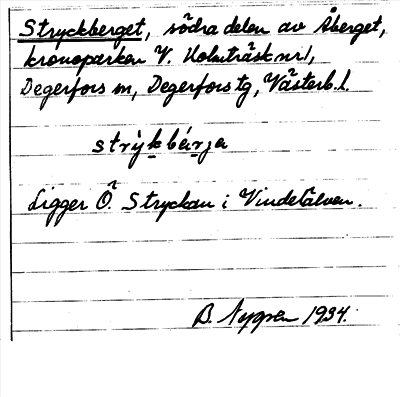 Stryckberget, södra delen av Åberget,
kronoparken V. Holmträsk nr 1,
Degerfors sn, Degerfors tg, Västerb. l.
strỳkbérja
Ligger Ö. Stryckan i Vindelälven.
B. Nygren 1934.